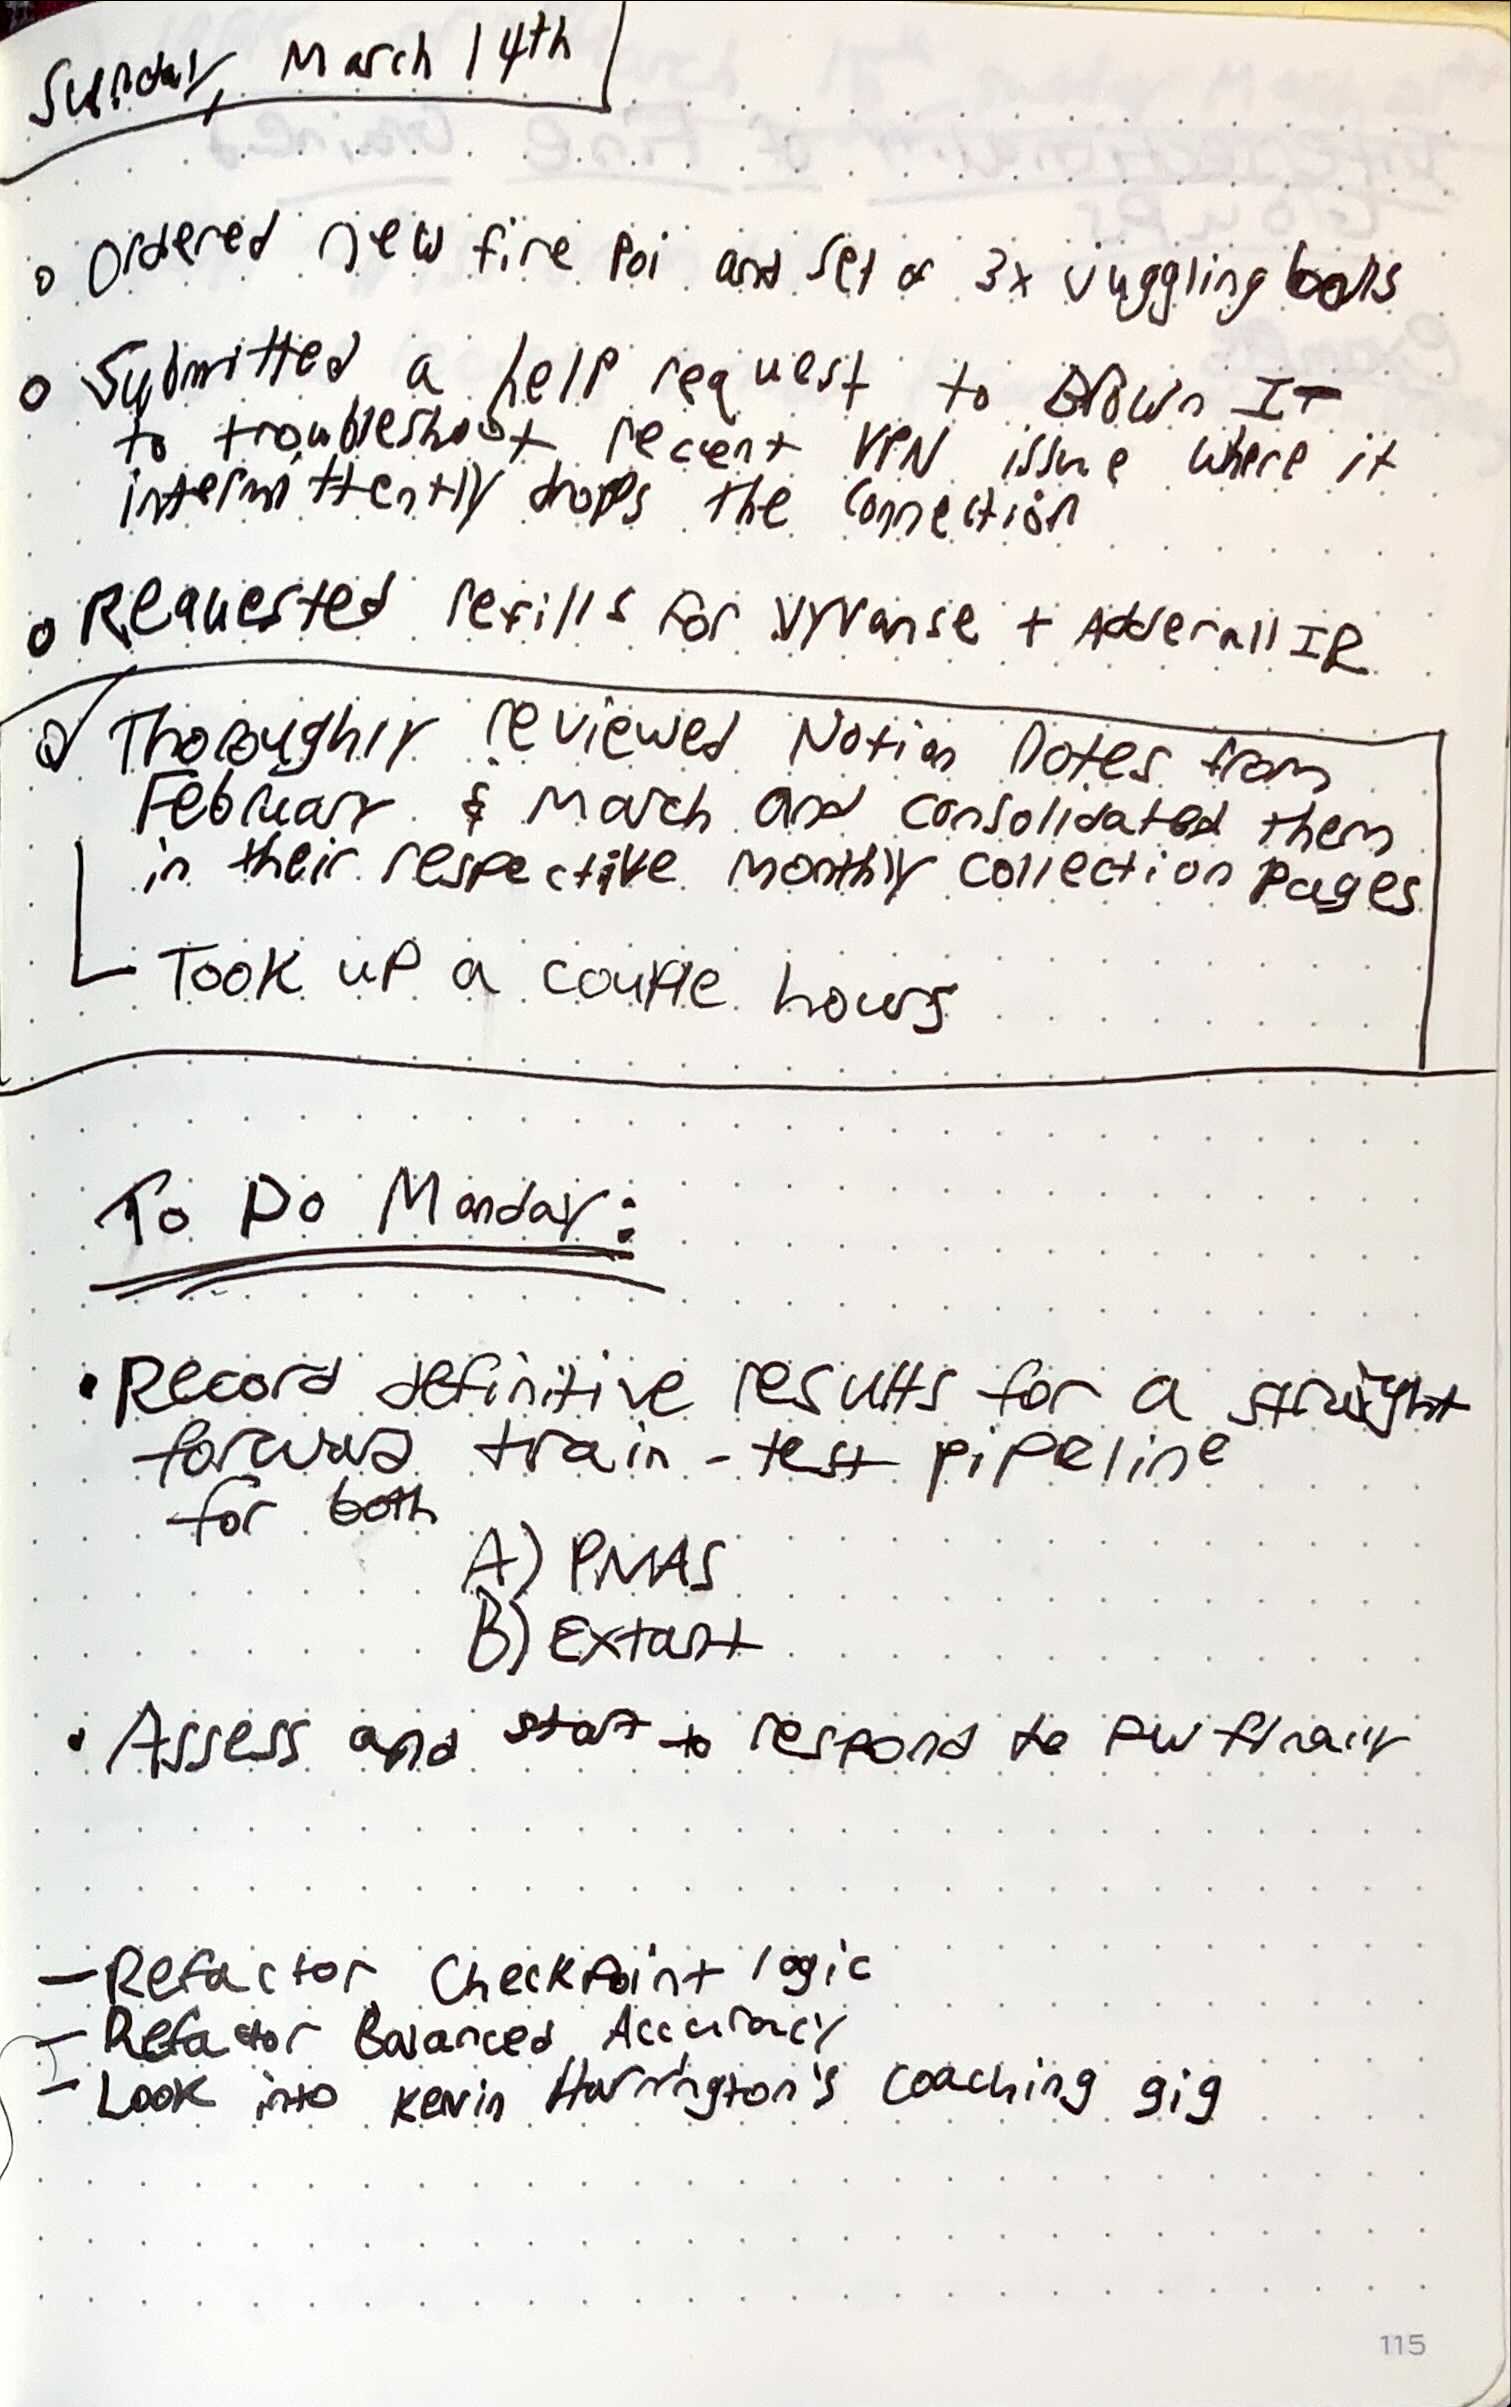 Sunday, March 14th
o Ordered new fire poi and set of 3x juggling balls
o Submitted a help request to Brown IT
to troubleshoot recent VPN issue where it
intermittently drops the connection
o Requested refills for Vyvanse + Adderall IR
Thoroughly reviewed Notion notes from
February & March and consolidated them
in their respective monthly collection pages
Took up a couple hours
To Do Monday:
• Record definitive results for a straight
forward train-test pipeline
for both
A) PNAS
B) Extant
• Assess and start to respond to
- Refactor Checkpoint logic
- Refactor Balanced Accuracy
- Look into Kevin Harrington's coaching gig
115